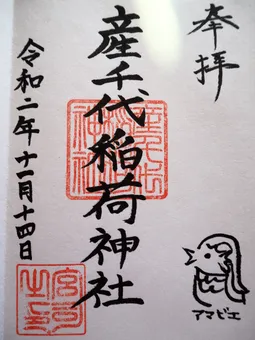 奉拝
産千代稲荷神社
令和二年十一月十四日
アマビエ